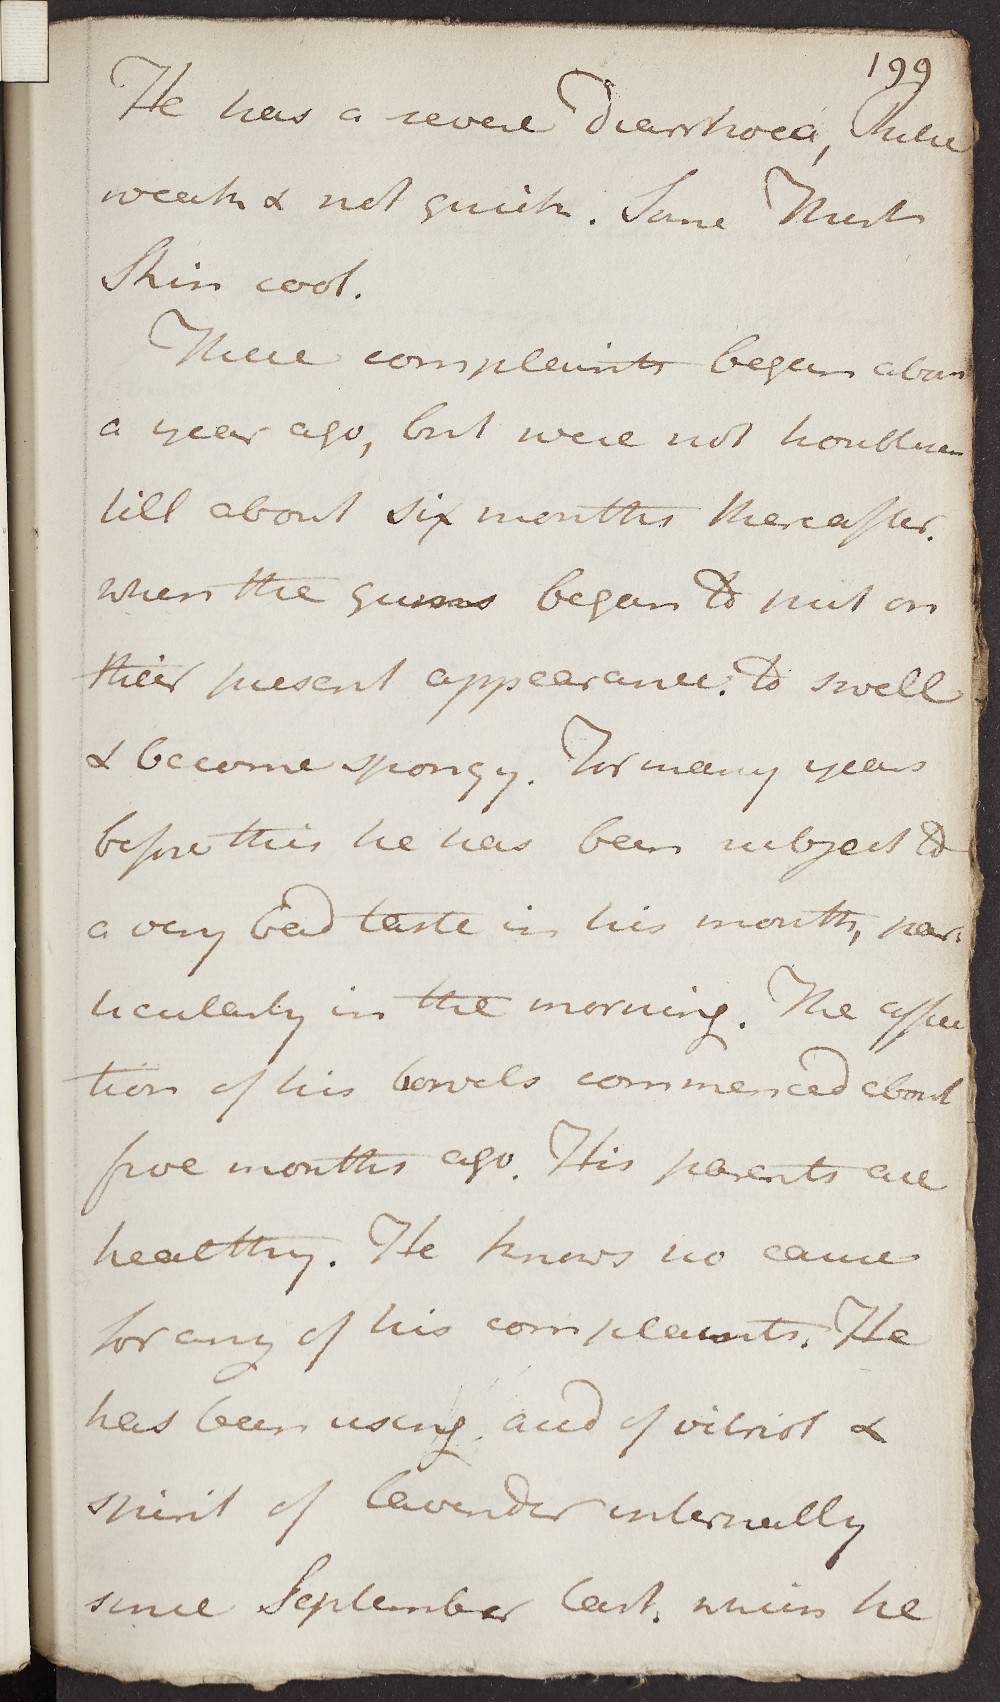 199
He has a severe Diarrhoea, Pulse
weak & not quick. Some Thirst
Skin cool.
These complaints began about
a year ago, but were not troublesome
till about six months thereafter.
when the gums began to put on
their present appearance. to swell
& become spongy. For many years
before this he has been subject to
a very bad taste in his mouth, par-
ticularly in the morning. The affec
tion of his bowels commenced about
five months ago. His parents are
healthy. He knows no cause
for any of his complaints. He
has been using acid of vitriol &
spirit of lavender internally
since September last. when he